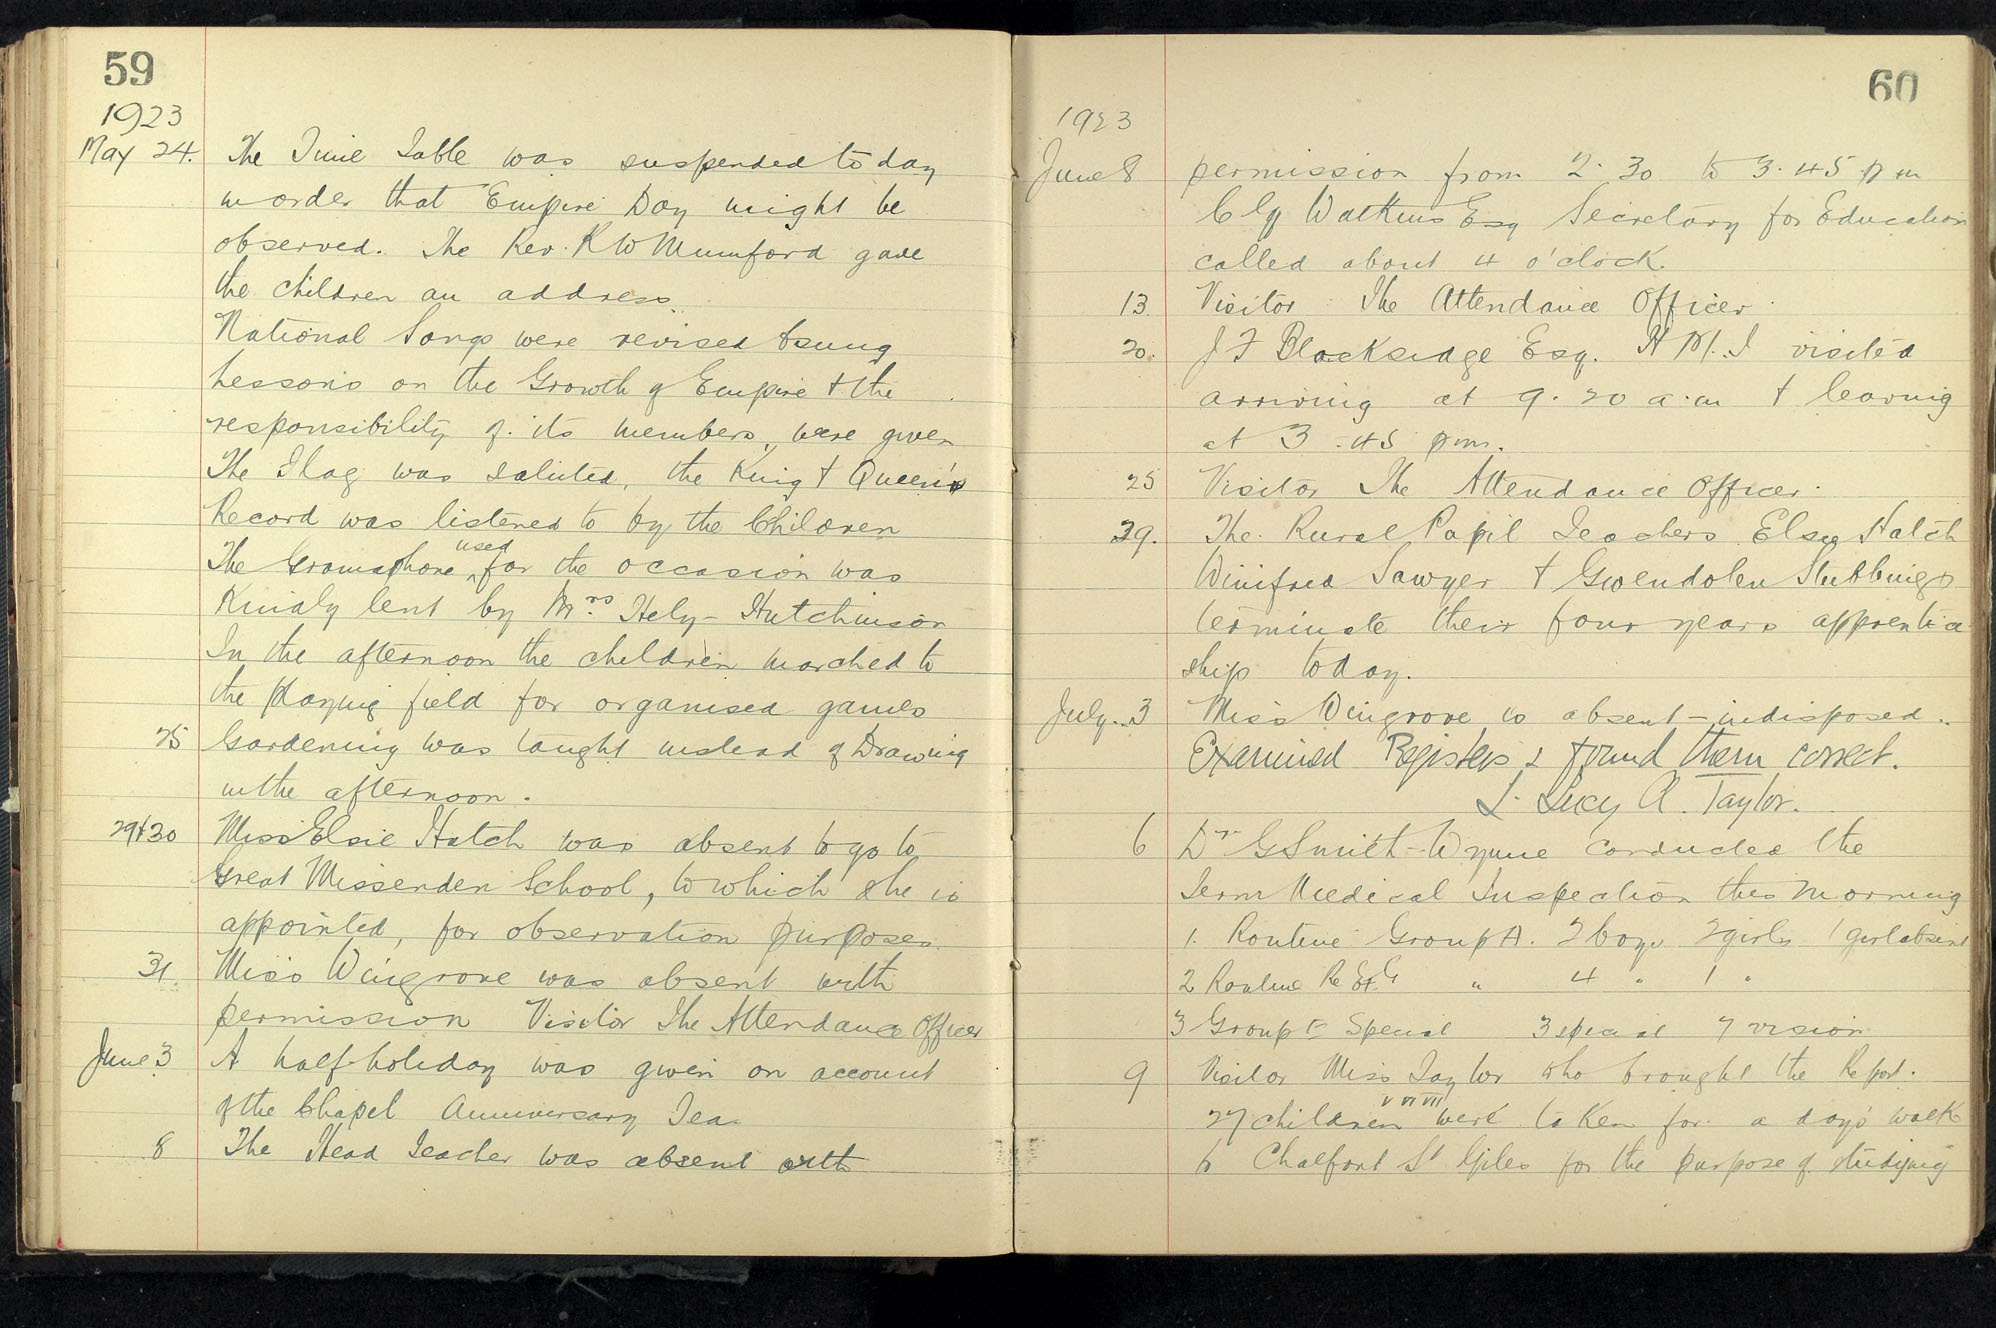 59
1923
May 24. The Time Table was suspended today
in order that Empire Day might be
observed. The Rev. R W Mumford gave
the children an address
National Songs were revised & sung
Lessons on the Growth of Empire & the
responsibility of its members, were given
The Flag was saluted, the King & Queen's
Record was listened to by the Children
The Gramaphone used for the occasion was
Kindly lent by Mrs Hely-Hutchinson
In the afternoon the children marched to
the playing field for organised games
25 Gardening was taught instead of Drawing
in the afternoon.
29 & 30 Miss Elsie Hatch was absent to go to
Great Missenden School, to which she is
appointed, for observation purposes.
31 Miss Wingrove was absent with
permission Visitor The Attendance Officer
June 3 A half-holiday was given on account
of the Chapel Anniversary Tea.
8 The Head Teacher was absent with
60
1923
June 8 permission from 2.30 to 3.45 pm
Watkins Esq Secretary for Education
called about 4 o'clock.
13. Visitor The Attendance Officer.
20. J F Blacksidge Esq. H M. I visited
arriving at 9.20 a.m & leaving
at 3.45 pm.
25 Visitor The Attendance Officer.
29. The Rural Pupil Teachers Elsie Hatch
Winifred Sawyer & Gwendolen Stubbings
terminate their four years apprentice
ship today.
July 3 Miss Wingrove is absent - indisposed.
Examined Registers & found them correct.
L. Lucy A. Taylor.
6 Dr G Smith-Wynne conducted the
Term Medical Inspection this morning
1. Routine Group A. 2 boys 2 girls 1 girl absent
2 Routine Re Ex G " 4 " 1 "
3 Group Special 3 special 7 vision
9 Visitor Miss Taylor who brought the Report.
V VI VII
27 children were taken for a day's walk
to Chalfont St Giles for the purpose of studying